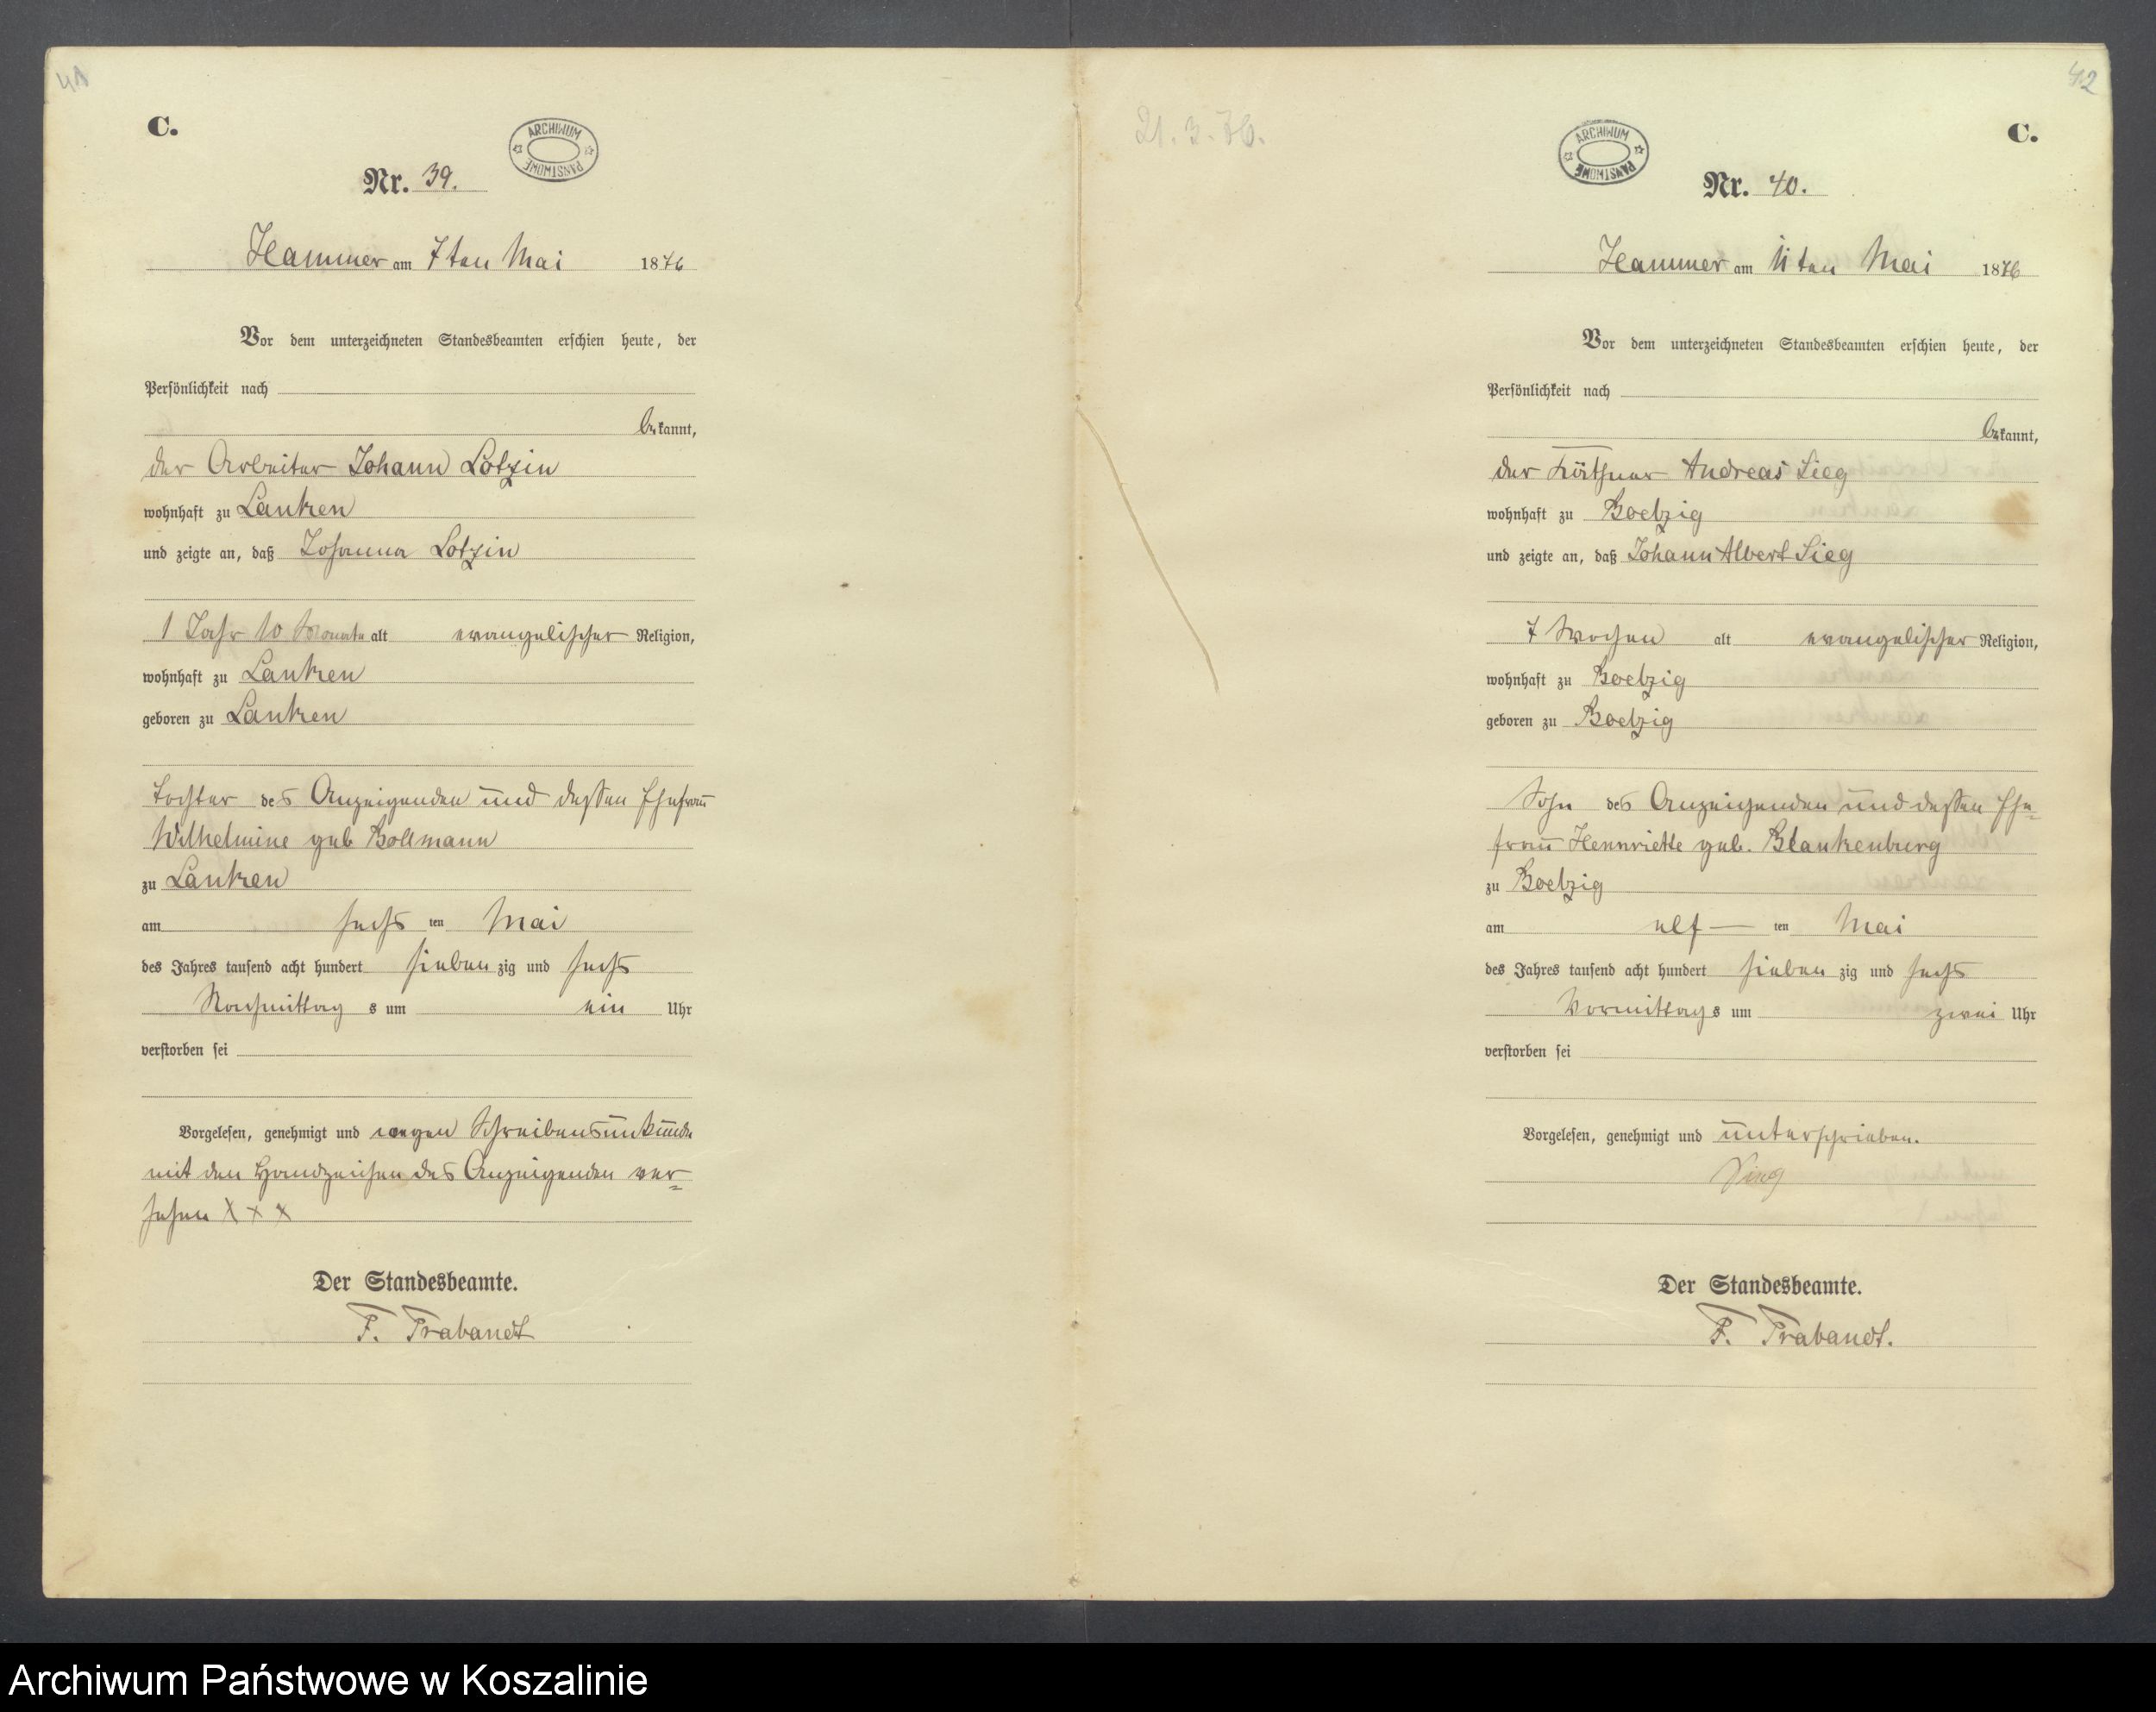 41
C.
ARCHIWUM PAŃSTWOWE
Nr. 39.
Hammer am 7ten Mai 1876
Vor dem unterzeichneten Standesbeamten erschien heute, der
Persönlichkeit nach
bekannt,
der Arbeiter Johann Lotzin
wohnhaft zu Lanken
und zeigte an, daß Johanna Lotzin
1 Jahr 10 Monate alt evangelischer Religion,
wohnhaft zu Lanken
geboren zu Lanken
Tochter des Anzeigenden und dessen Ehefrau
Wilhelmine geb Bollmann
zu Lanken
am sechs ten Mai
des Jahres tausend acht hundert sieben zig und sechs
Nachmittag s um ein Uhr
verstorben sei
Vorgelesen, genehmigt und wegen Schreibensunkunde
mit den Handzeichen des Anzeigenden ver=
sehen X X X
Der Standesbeamte.
F. Trabandt
42
21.3.76.
C.
ARCHIWUM PAŃSTWOWE
Nr. 40.
Hammer am 11ten Mai 1876
Vor dem unterzeichneten Standesbeamten erschien heute, der
Persönlichkeit nach
bekannt,
der Käthner Andreas Sieg
wohnhaft zu Boetzig
und zeigte an, daß Johann Albert Sieg
7 Wochen alt evangelischer Religion,
wohnhaft zu Boetzig
geboren zu Boetzig
Sohn des Anzeigenden und dessen Ehe=
frau Hennriette geb. Blankenburg
zu Boetzig
am elf — ten Mai
des Jahres tausend acht hundert sieben zig und sechs
Vormittags um zwei Uhr
verstorben sei
Vorgelesen, genehmigt und unterschrieben.
Sieg
Der Standesbeamte.
F. Trabandt.
Archiwum Państwowe w Koszalinie